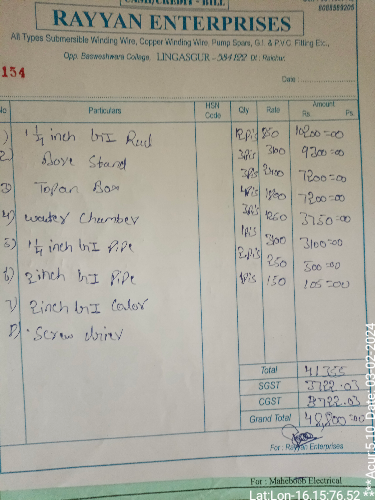 CASH/CREDIT - BILL
RAYYAN ENTERPRISES
All Types Submersible Winding Wire, Copper Winding Wire, Pump Spars, G.I. & P.V.C. Fitting Etc.,
Opp. Basweshwara College, LINGASUGUR - 584122 Dt : Raichur.
154
Date :
No Particulars HSN Code Qty Rate Amount Rs. Ps.
1) 1¼ inch 850 10200=00
2) Bore Stand 3Pis 3100 9300=00
3) Topan Box 3Pis 2400 7200=00
4) water Chamber 4Pis 1800 7200=00
5) 1¼ inch GI PiPe 3Pis 1250 3750=00
6) 2inch GI PiPe 1Pis 3100 3100=00
7) 2inch GI 2Pis 250 500=00
8) Screw driver 1Pis 150 105=00
Total 41355
SGST 3722.03
CGST 3722.03
Grand Total 48,800=00
For : Rayyan Enterprises
For : Maheboob Electrical
Lat:Lon-16.15:76.52
***Acur:5.10 Date: 03-02-2024